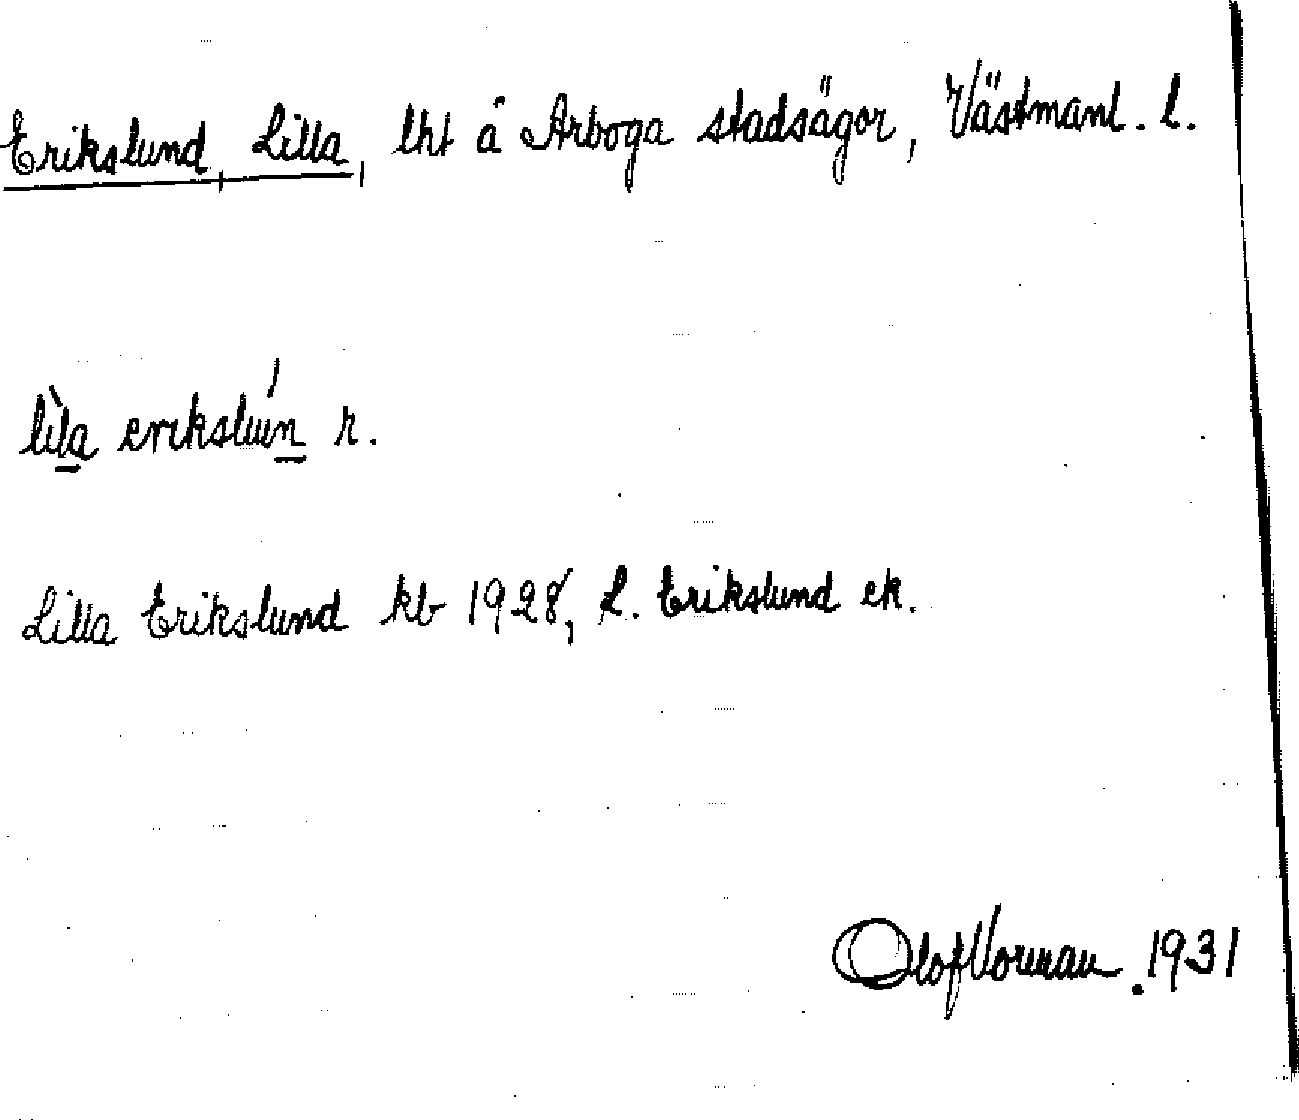 Erikslund, Lilla, lht å Arboga stadsägor, Västmanl. l.
lìla erikslún r.
Lilla Erikslund kb 1928, L. Erikslund ek.
Olof Vorman. 1931